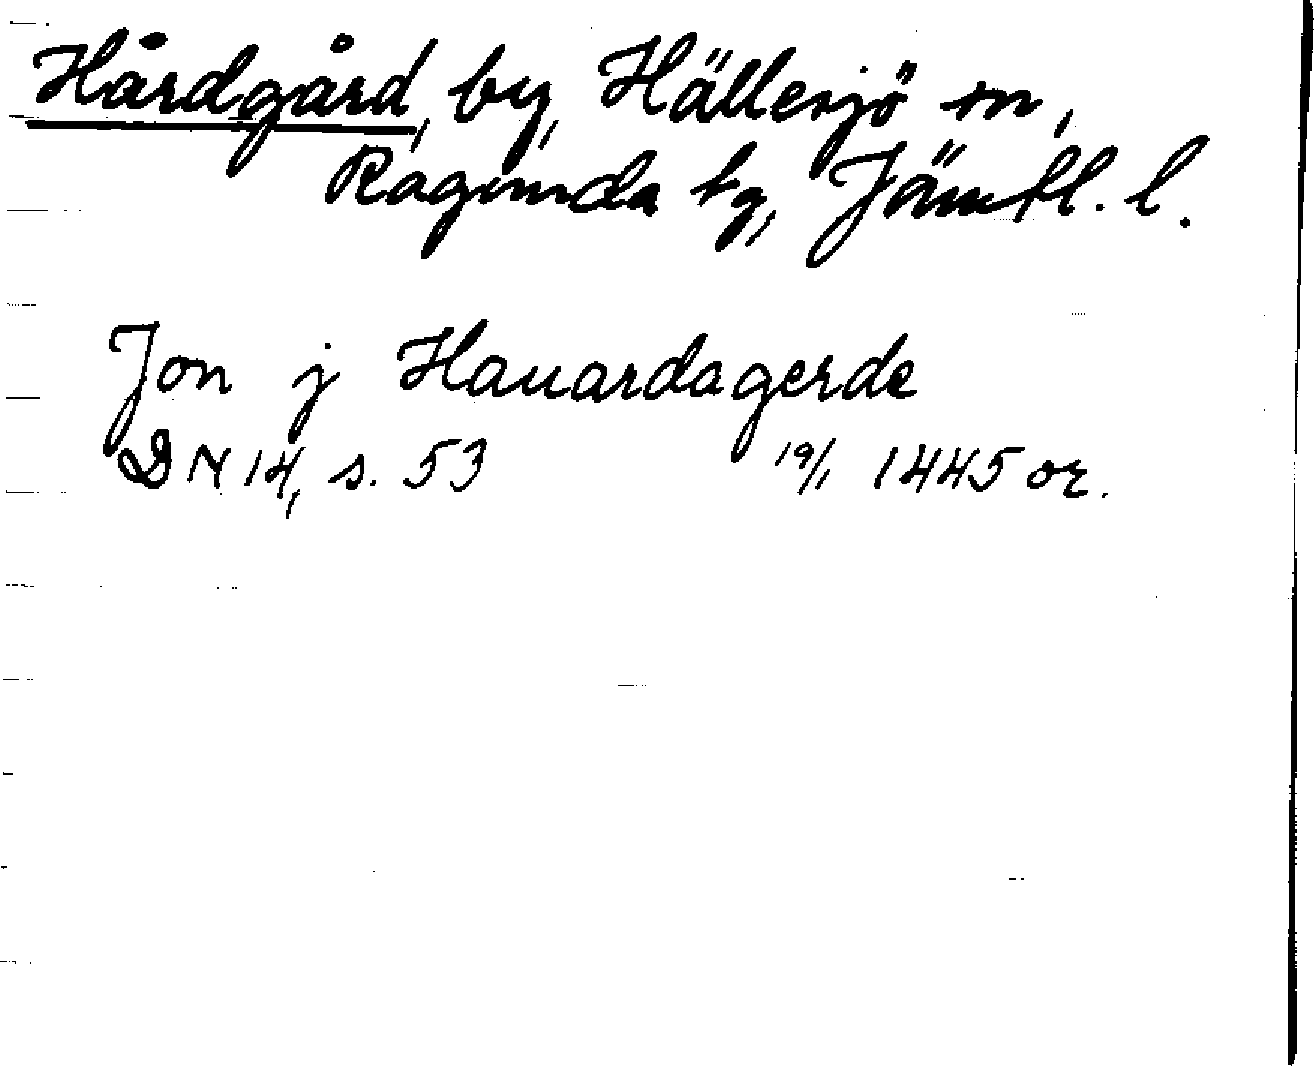 Hårdgård, by, Hällesjö sn,
Ragunda tg, Jämtl. l.
Jon j Hauardagerde
DN 14, s. 53 19/1 1445 or.